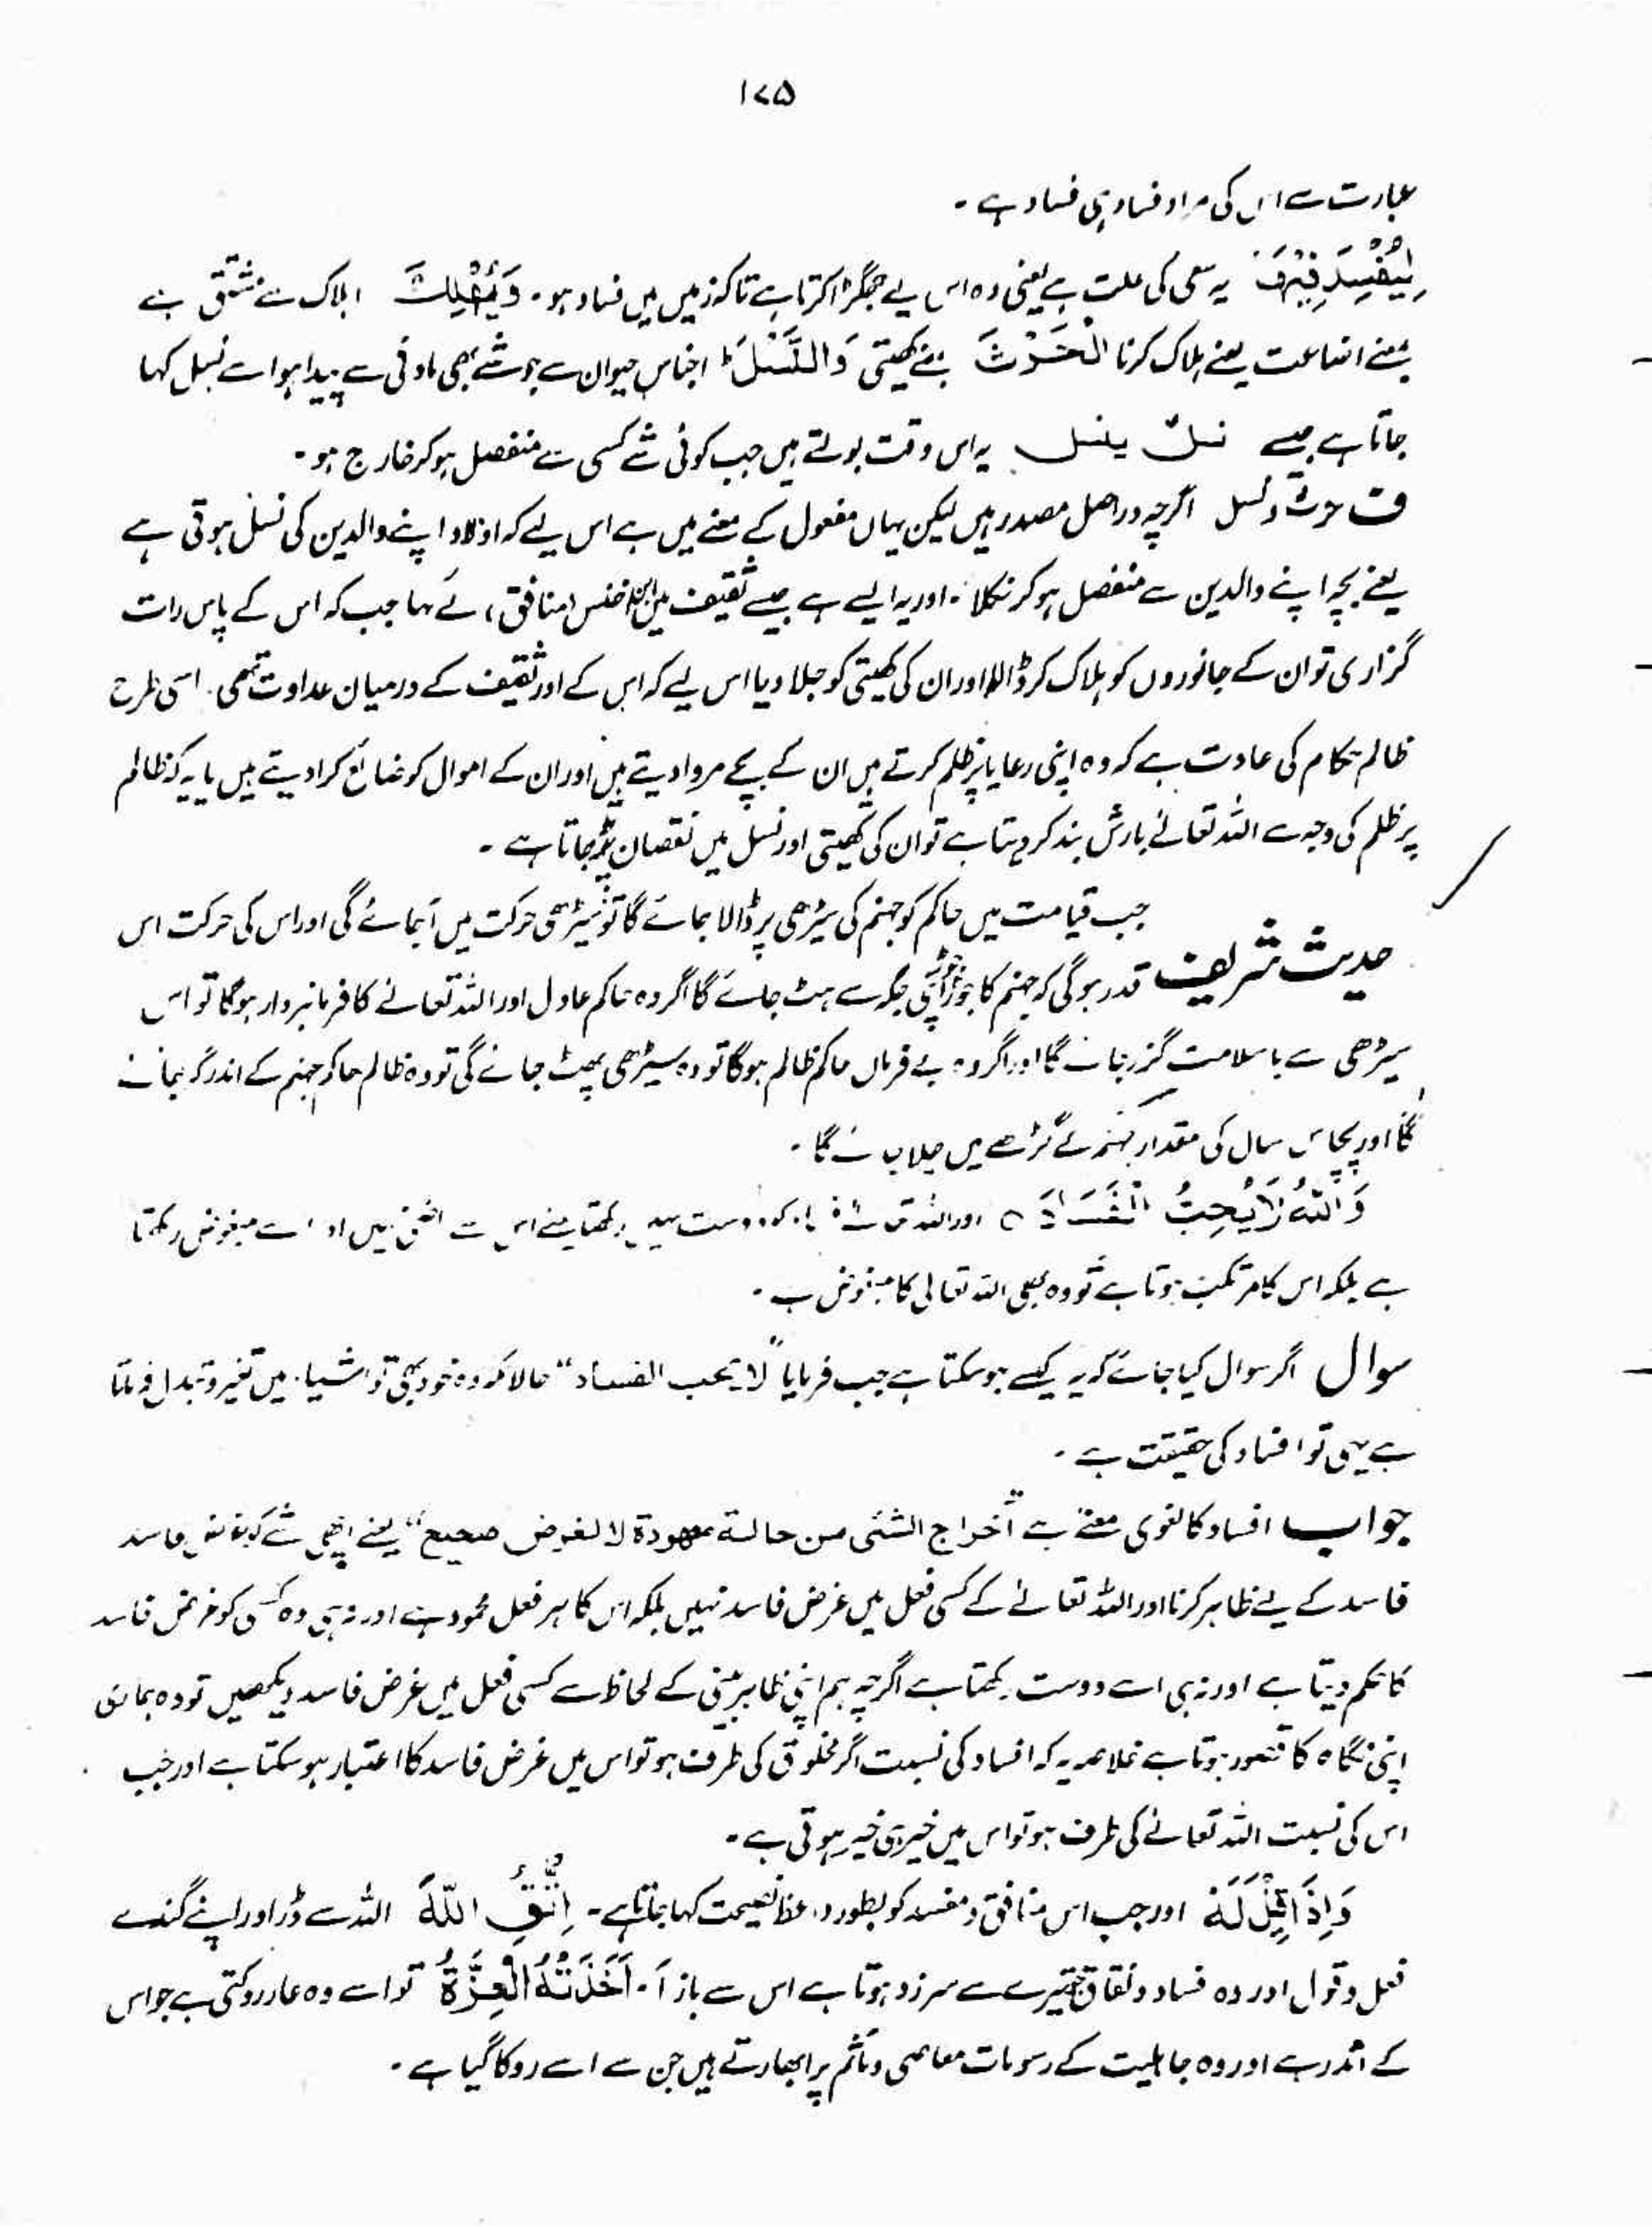 ۱۷۵
عبارت سے اس کی مراد فساد ہی فساد ہے ۔
لِيُفْسِدَ فِيْهَا یہ سعی کی علت ہے یعنی وہ اس لیے جھگڑا کرتا ہے تاکہ زمین میں فساد ہو ۔ وَيُهْلِكَ اہلاک سے مشتق ہے
بمعنے اضاعت یعنے ہلاک کرنا الْحَرْثَ بمعنے کھیتی وَالنَّسْلَ ؕ اجناس حیوان سے جو شے بھی مادہ سے پیدا ہو اسے نسل کہا
جاتا ہے جیسے نسل ینسل یہ اس وقت بولتے ہیں جب کوئی شے کسی سے منفصل ہو کر خارج ہو ۔
ف حرث و نسل اگرچہ دراصل مصدر ہیں لیکن یہاں مفعول کے معنے میں ہے اس لیے کہ اولاد اپنے والدین کی نسل ہوتی ہے
یعنے بچہ اپنے والدین سے منفصل ہو کر نکلا ۔ اور یہ ایسے ہے جیسے ثقیف میں اخنس (منافق) نے کہا جب کہ اس کے پاس رات
گزاری تو ان کے جانوروں کو ہلاک کر ڈالا اور ان کی کھیتی کو جلا دیا اس لیے کہ اس کے اور ثقیف کے درمیان عداوت تھی ۔ اسی طرح
ظالم حکام کی عادت ہے کہ وہ اپنی رعایا پر ظلم کرتے ہیں ان کے بچے مروا دیتے ہیں اور ان کے اموال کو ضائع کرا دیتے ہیں یا یہ کہ ظالم
پر ظلم کی وجہ سے اللہ تعالےٰ بارش بند کر دیتا ہے تو ان کی کھیتی اور نسل میں نقصان پڑ جاتا ہے ۔
جب قیامت میں حاکم کو جہنم کی سیڑھی پر ڈالا جائے گا تو سیڑھی حرکت میں آ جائے گی اور اس کی حرکت اس
حدیث شریف قدر ہو گی کہ جہنم کا ہر جوڑ اپنی جگہ سے ہٹ جائے گا اگر وہ حاکم عادل اور اللہ تعالےٰ کا فرمانبردار ہوگا تو اس
سیڑھی سے باسلامت گزر جائے گا اور اگر وہ بے فرماں حاکم ظالم ہوگا تو وہ سیڑھی پھٹ جائے گی تو وہ ظالم حاکم جہنم کے اندر گر جائے
گا اور پچاس سال کی مقدار جہنم کے گڑھے میں چلا جائے گا ۔
وَاللّٰهُ لَا يُحِبُّ الْفَسَادَ ○ اور اللہ تعالےٰ فساد کو دوست نہیں رکھتا یعنے اس سے راضی نہیں اور اسے مبغوض رکھتا
ہے بلکہ اس کا مرتکب ہوتا ہے تو وہ بھی اللہ تعالیٰ کا مبغوض ہے ۔
سوال اگر سوال کیا جائے کہ یہ کیسے ہو سکتا ہے جب فرمایا "لا یحب الفساد" حالانکہ وہ خود بھی تو اشیاء میں تغیر و تبدل فرماتا
ہے یہی تو افساد کی حقیقت ہے ۔
جواب افساد کا لغوی معنےٰ ہے "اخراج الشئی من حالة محمودة لا لغرض صحیح" یعنے اچھی شے کو بغرض فاسد
فاسد کے لیے ظاہر کرنا اور اللہ تعالےٰ کے کسی فعل میں غرض فاسد نہیں بلکہ اس کا ہر فعل محمود ہے اور نہ ہی وہ کسی کو غرض فاسد
کا حکم دیتا ہے اور نہ ہی اسے دوست رکھتا ہے اگرچہ ہم اپنی ظاہر بینی کے لحاظ سے کسی فعل میں غرض فاسد دیکھیں تو وہ ہماری
اپنی نگاہ کا قصور ہوتا ہے خلاصہ یہ کہ افساد کی نسبت اگر مخلوق کی طرف ہو تو اس میں غرض فاسد کا اعتبار ہو سکتا ہے اور جب
اس کی نسبت اللہ تعالےٰ کی طرف ہو تو اس میں خیر ہی خیر ہوتی ہے ۔
وَاِذَا قِيْلَ لَهُ اور جب اس منافق و مفسد کو بطور وعظ نصیحت کہا جاتا ہے ۔ اتَّقِ اللّٰهَ اللہ سے ڈر اور اپنے گندے
فعل و قول اور وہ فساد و نفاق جو تیرے سے سرزد ہوتا ہے اس سے باز آ ۔ اَخَذَتْهُ الْعِزَّةُ تو اسے وہ عار روکتی ہے جو اس
کے اندر ہے اور وہ جاہلیت کے رسومات معاصی و مآثم پر ابھارتے ہیں جن سے اسے روکا گیا ہے ۔